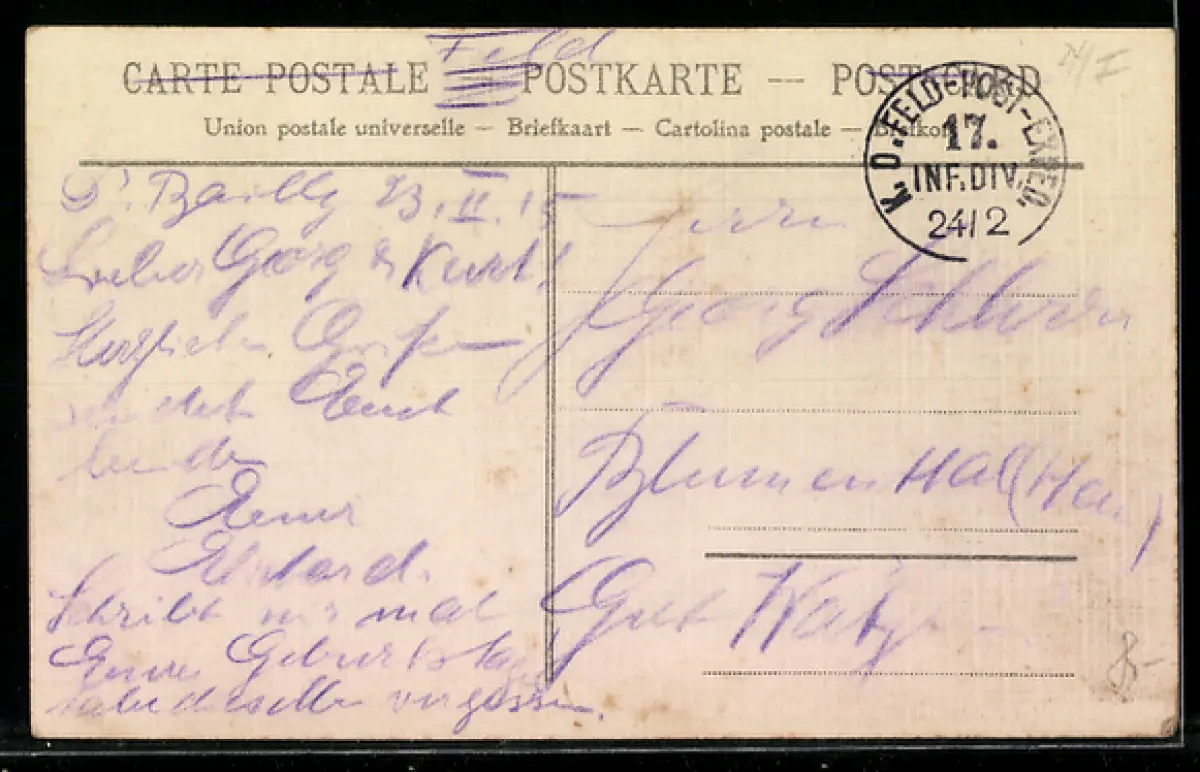 Feld
CARTE POSTALE — POSTKARTE — POSTCARD
Union postale universelle — Briefkaart — Cartolina postale — Brefkort
K.D. FELD-POST-EXPED.
17.
INF. DIV.
24/2
Bailly 23. II. 15
Lieber Georg & Kurt!
Herzliche Grüße
sendet Euch
beiden
Euer
Schreibt mir mal
Eure Geburtstage
habe dieselben vergessen.
Herrn
Georg
Blumenthal (Han)
Gut